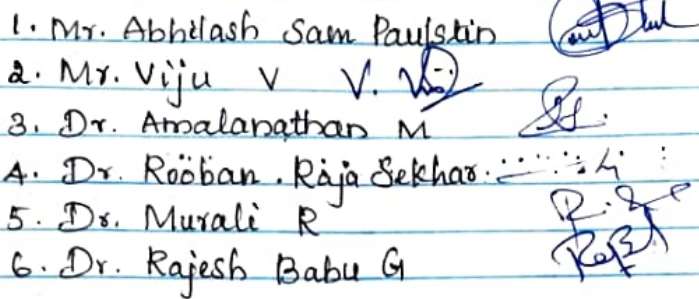 1. Mr. Abhilash Sam Paulstin
2. Mr. Viju V V.
3. Dr. Amalanathan M
4. Dr. Rooban . Raja Sekhar.
5. Dr. Murali R
6. Dr. Rajesh Babu G